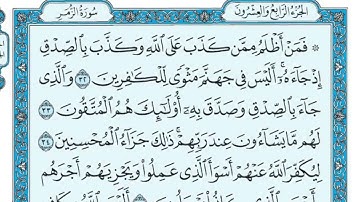 الجزء الرابع والعشرون
سورة الزمر
۞ فَمَنْ أَظْلَمُ مِمَّن كَذَبَ عَلَى ٱللَّهِ وَكَذَّبَ بِٱلصِّدْقِ
إِذْ جَآءَهُۥٓ ۚ أَلَيْسَ فِى جَهَنَّمَ مَثْوًى لِّلْكَٰفِرِينَ ٣٢ وَٱلَّذِى
جَآءَ بِٱلصِّدْقِ وَصَدَّقَ بِهِۦٓ ۙ أُو۟لَٰٓئِكَ هُمُ ٱلْمُتَّقُونَ ٣٣
لَهُم مَّا يَشَآءُونَ عِندَ رَبِّهِمْ ۚ ذَٰلِكَ جَزَآءُ ٱلْمُحْسِنِينَ ٣٤
لِيُكَفِّرَ ٱللَّهُ عَنْهُمْ أَسْوَأَ ٱلَّذِى عَمِلُوا۟ وَيَجْزِيَهُمْ أَجْرَهُم